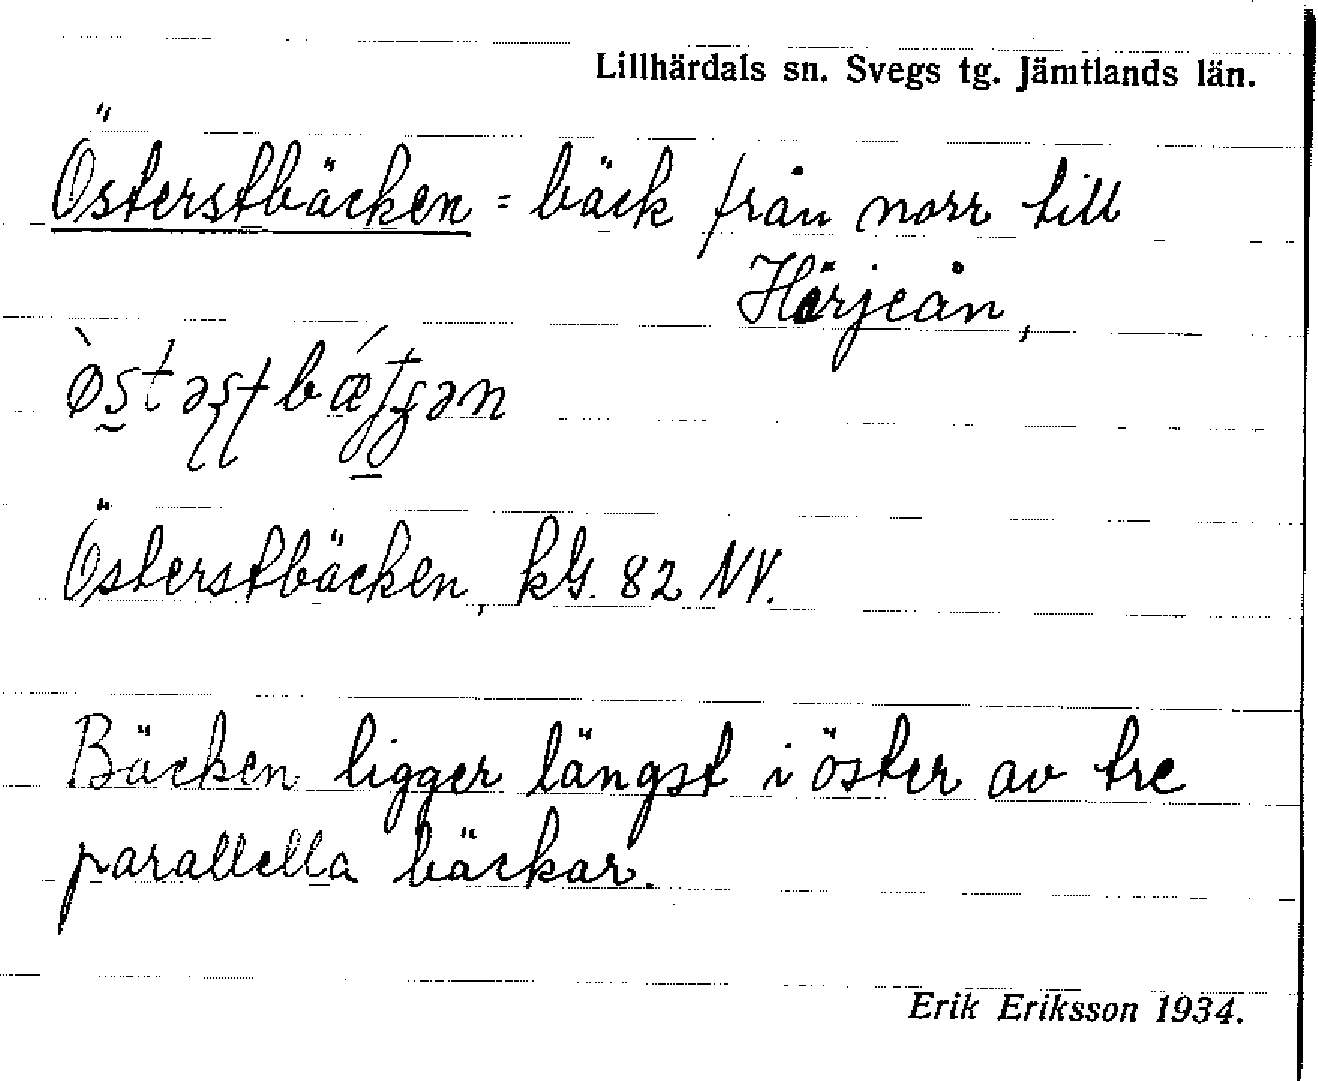 Lillhärdals sn. Svegs tg. Jämtlands län.
Österstbäcken = bäck från norr till
Härjeån,
Österstbäcken, kG. 82 NV.
Bäcken ligger längst i öster av tre
parallella bäckar.
Erik Eriksson 1934.